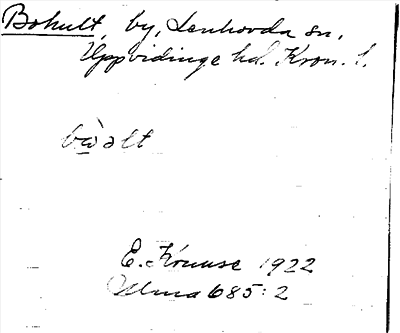 Bohult, by, Lenhovda sn,
Uppvidinge hd. Kron. l.
E. Kruuse 1922
685:2